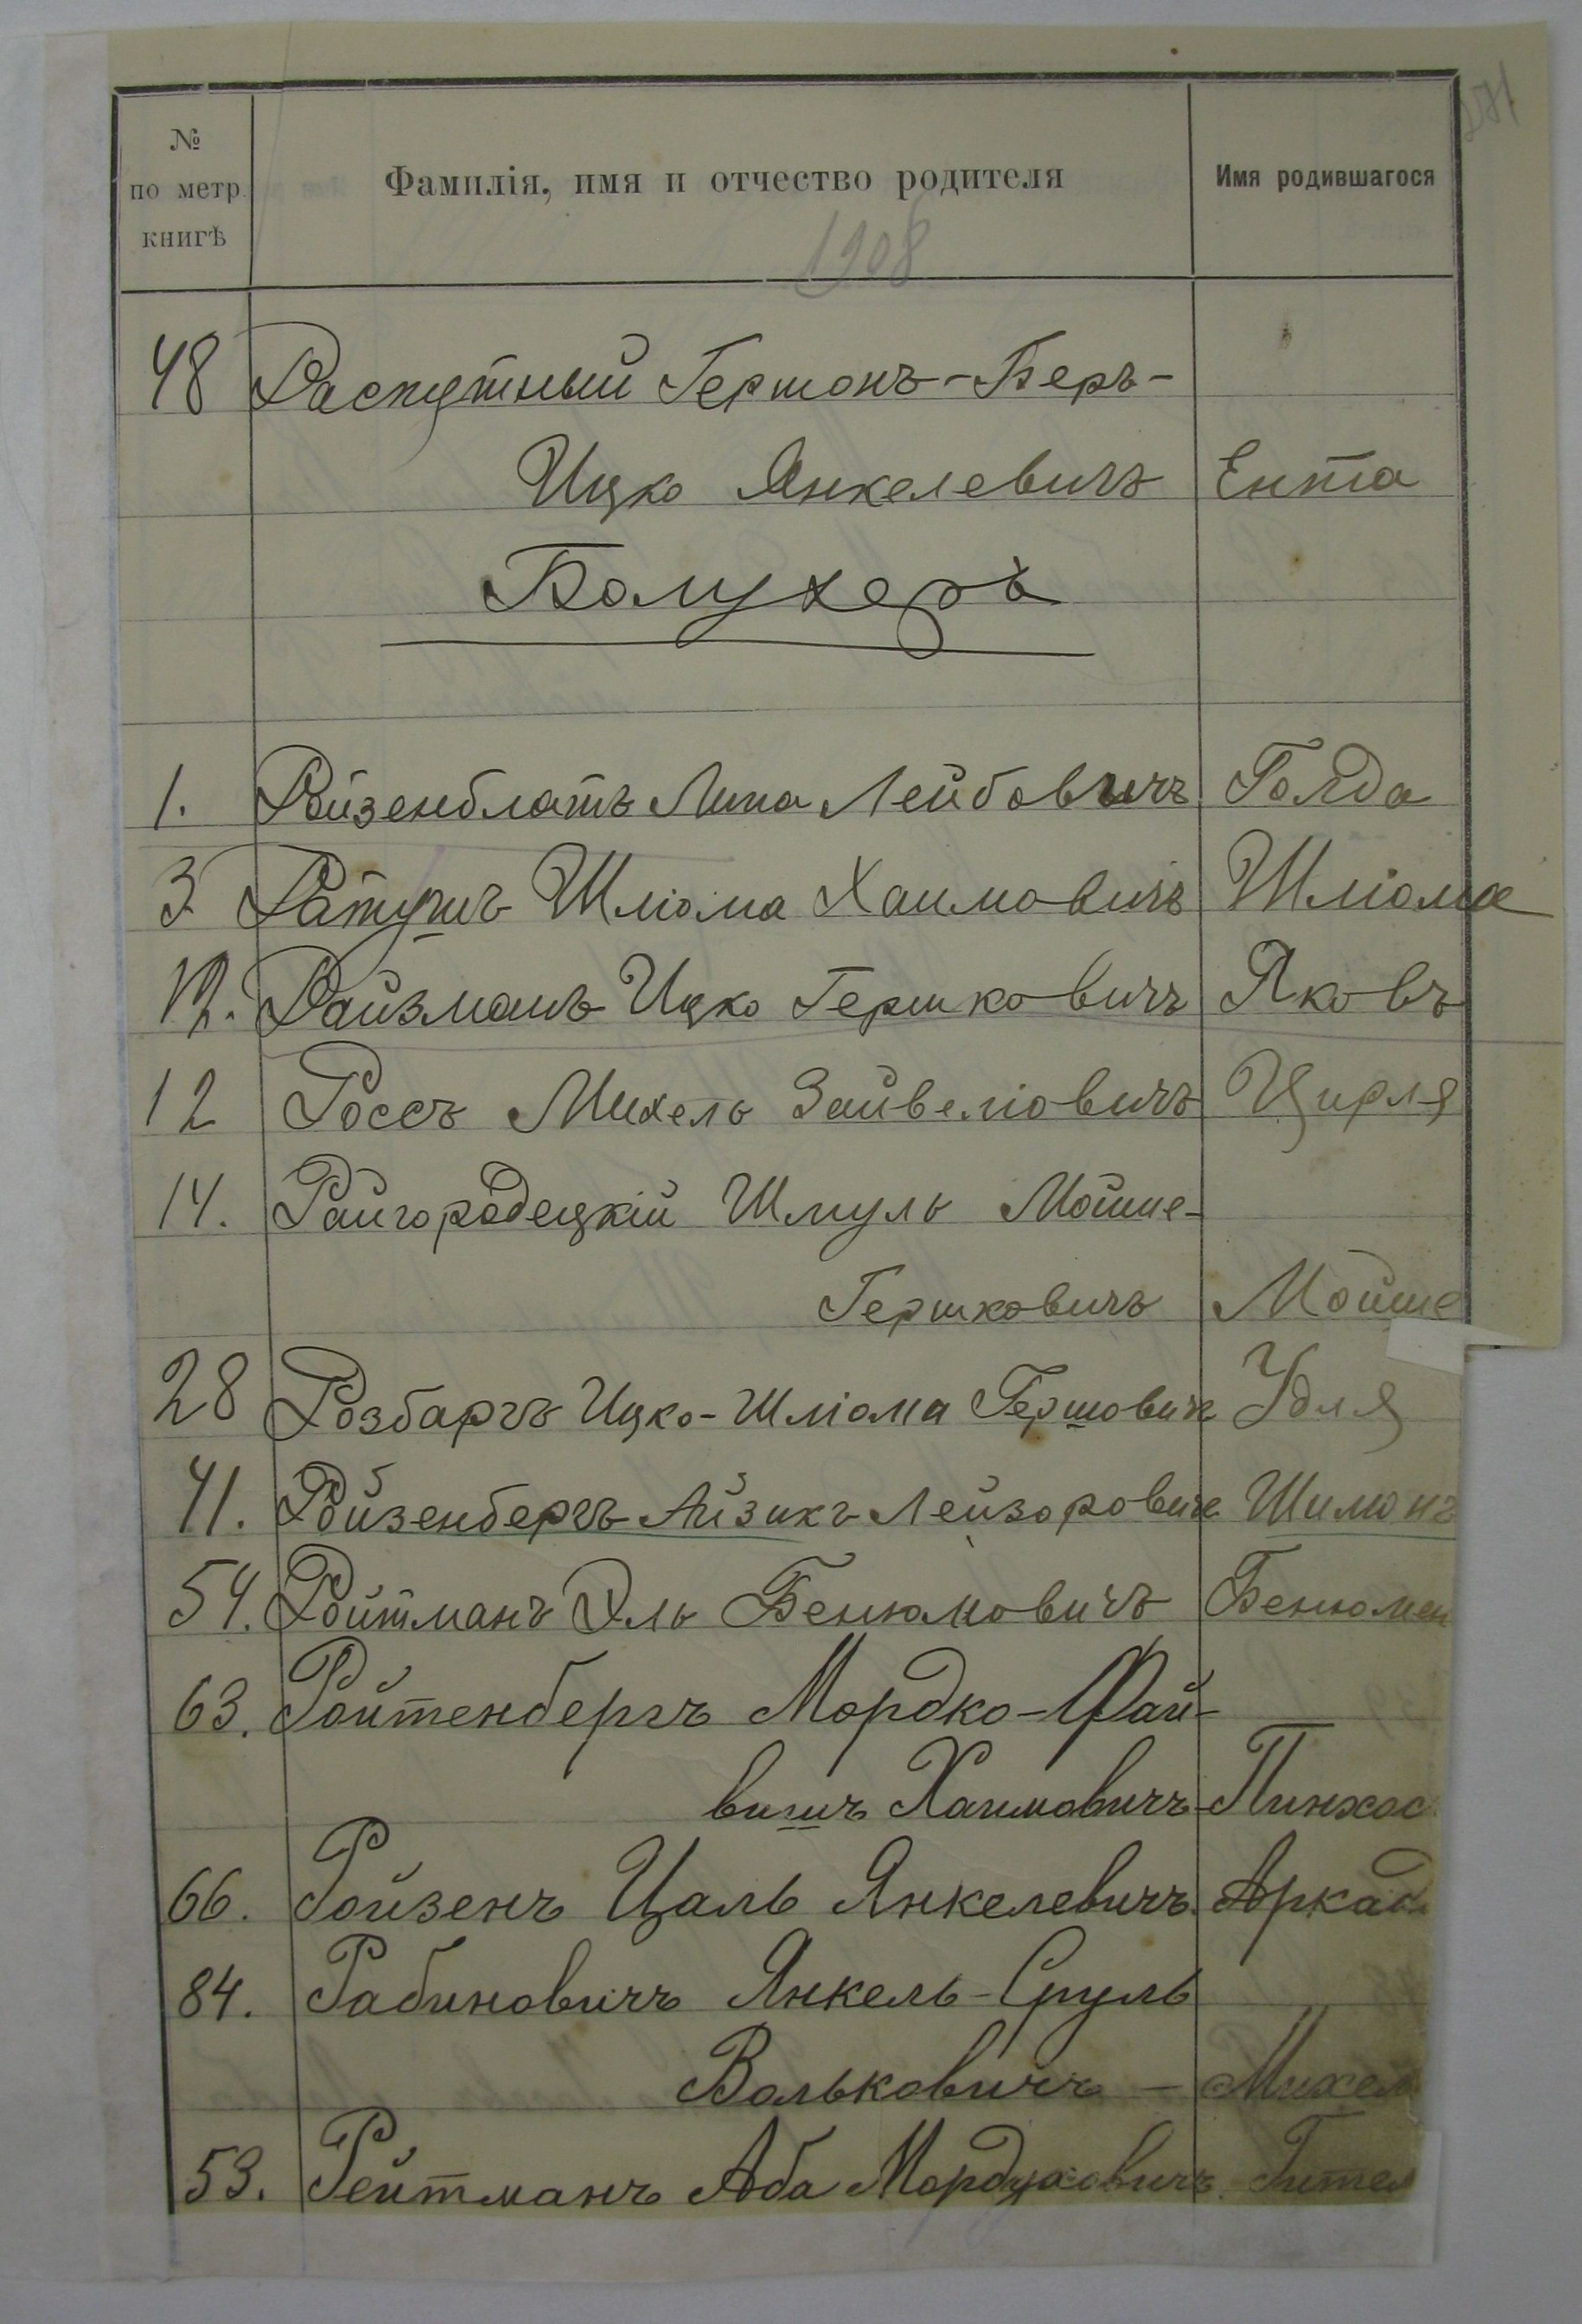 № по метр. книгѣ | Фамилія, имя и отчество родителя | Имя родившагося
1908
271
48 Распутный Гершонъ-Беръ-
Ицко Янкелевичъ Ента
Балухеръ
1. Ройзенблатъ Липа Лейбовичъ Голда
3 Ратушъ Шліома Хаимовичъ Шліома
12. Райзманъ Ицко Гершковичъ Яковъ
12 Россъ Михель Зайвеліовичъ Цирля
14. Райгородецкій Шмуль Мойше-
Гершковичъ Мойше
28 Розбаргъ Ицко-Шліома Гершович Удля
41. Ройзенбергъ Айзикъ Лейзорович Шимонъ
54. Ройтманъ Эль Бенюмовичъ Бенюмен
63. Ройтенбергъ Мордко-Фай-
вишъ Хаимовичъ Пинхос
66. Ройзенъ Цаль Янкелевичъ Аркад
84. Рабиновичъ Янкель-Сруль
Вольковичъ - Михел
53. Рейтманъ Аба Мордуховичъ Гител